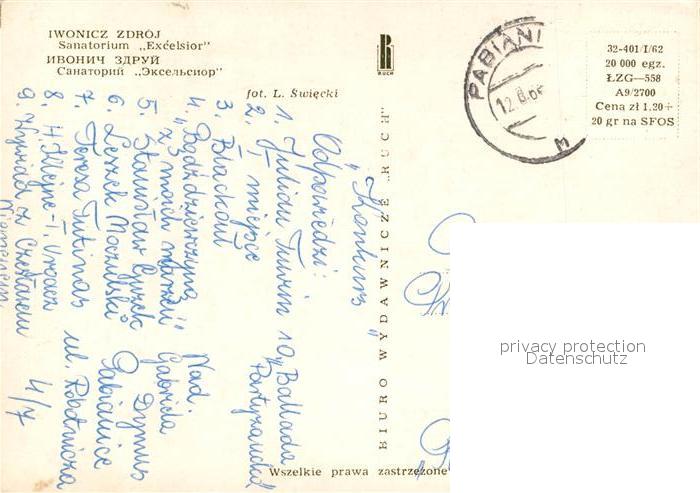 IWONICZ ZDRÓJ
Sanatorium „Exćelsior"
ИВОНИЧ ЗДРУЙ
Санаторий „Эксельсиор"
fot. L. Święcki
RUCH
BIURO WYDAWNICZE „RUCH"
Wszelkie prawa zastrzeżone
PABIANI
12.8.66
M
32-401/I/62
20 000 egz.
ŁZG—558
A9/2700
Cena zł 1.20+
20 gr na SFOS
„Konkurs"
Odpowiedzi:
1. Julian Tuwim 10) Ballada
2. I miejsce Partyzancka
3. Blachout
4. „Bądź dziewczyną
z moich marzeń" Nad.
5. Stanisław Gabriela
6. Leszek Dymus
7. Teresa Tutinas Pabianice
8. H. ul. Robotnicza
9. z 4/7
Niemenem
privacy protection
Datenschutz